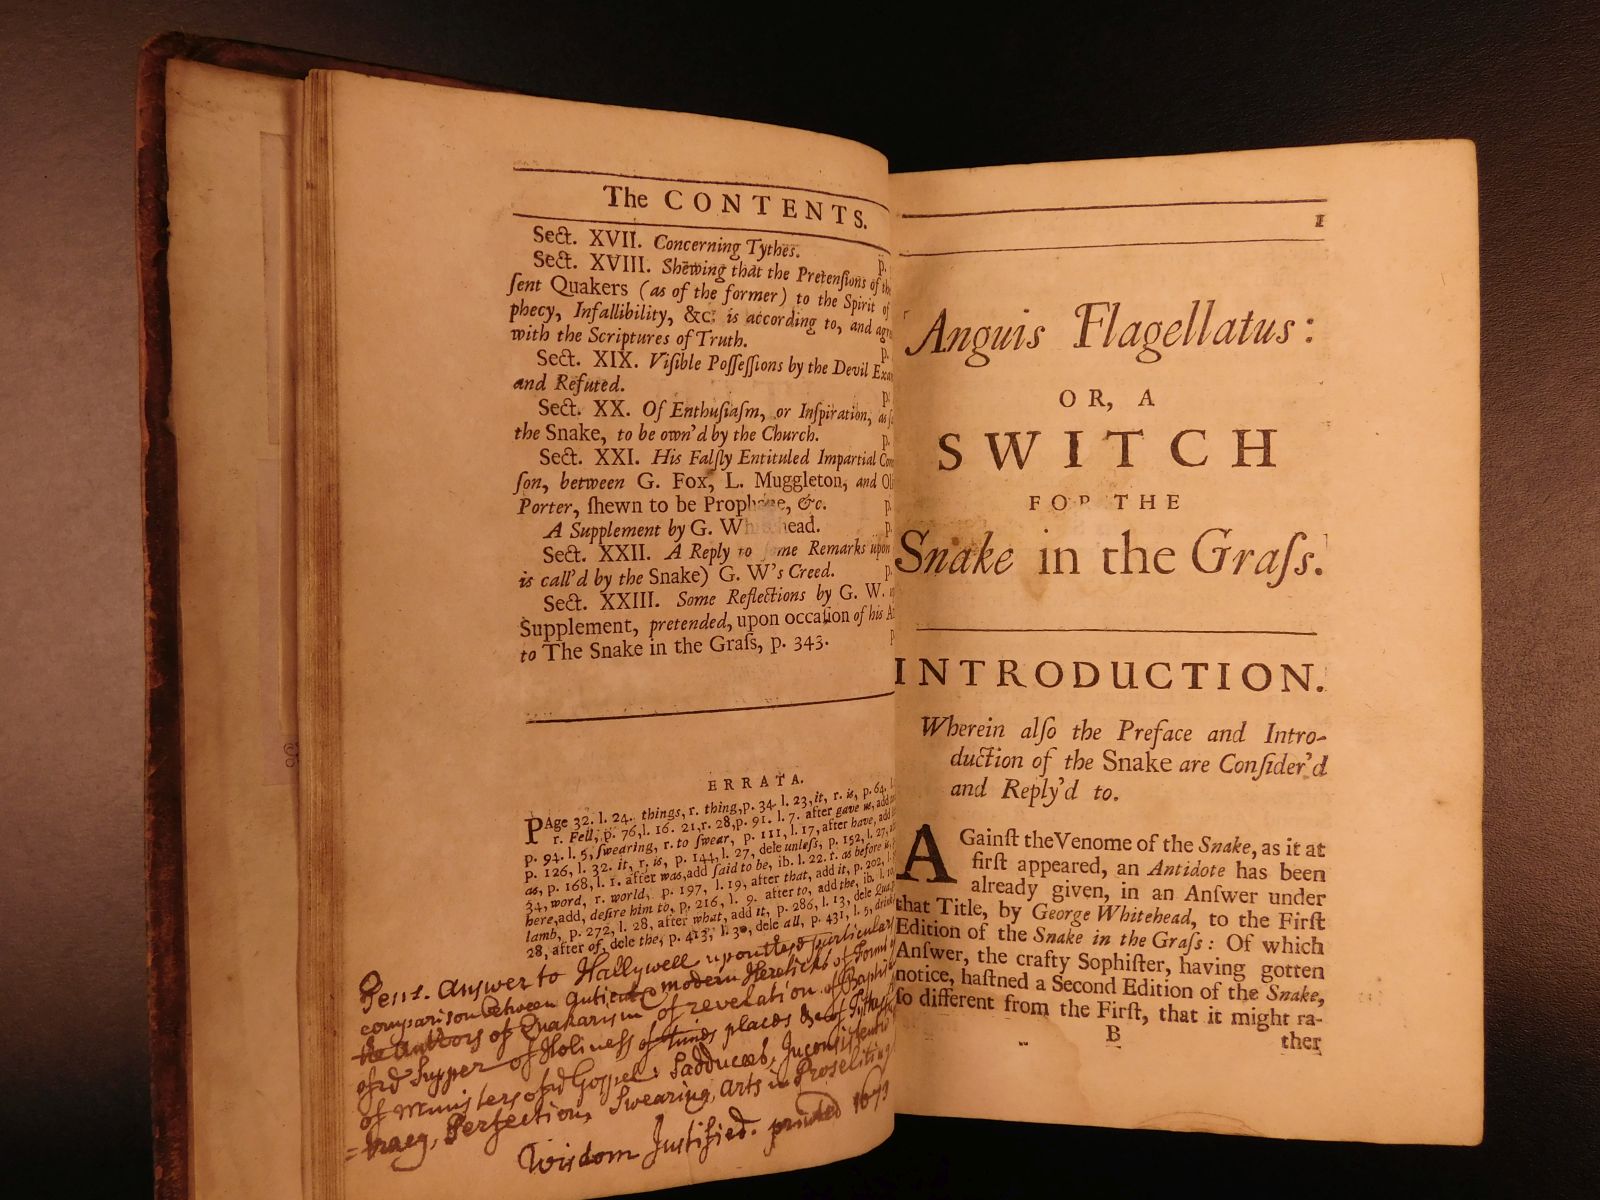 The CONTENTS.
Sect. XVII. Concerning Tythes.
p.
Sect. XVIII. Shewing that the Pretenſions of the
ſent Quakers (as of the former) to the Spirit of
phecy, Infallibility, &c. is according to, and agre
with the Scriptures of Truth.
p.
Sect. XIX. Viſible Poſſeſſions by the Devil Exa
and Refuted.
p.
Sect. XX. Of Enthuſiaſm, or Inſpiration, as ſ
the Snake, to be own'd by the Church.
p.
Sect. XXI. His Falſly Entituled Impartial Com
ſon, between G. Fox, L. Muggleton, and Ol
Porter, ſhewn to be Prophane, &c.
p.
A Supplement by G. Whitehead.
p.
Sect. XXII. A Reply to ſome Remarks upon
is call'd by the Snake) G. W's Creed.
p.
Sect. XXIII. Some Reflections by G. W.
Supplement, pretended, upon occaſion of his A
to The Snake in the Graſs, p. 343.
p
ERRATA.
PAge 32. l. 24. things, r. thing, p. 34. l. 23, it, r. is, p. 64. l
r. Fell, p. 76, l. 16. 21, r. 28, p. 91. l. 7. after gave us, add
p. 94. l. 5, ſwearing, r. to ſwear, p. 111, l. 17, after have, add
p. 126, l. 32. it, r. is, p. 144, l. 27, dele unleſs, p. 152, l. 27, a
as, p. 168, l. 1. after was, add ſaid to be, ib. l. 22. r. as before is,
34, word, r. world, p. 197, l. 19, after that, add it, p. 202, l.
here, add, deſire him to, p. 216, l. 9. after to, add the, ib. l. 10
lamb, p. 272, l. 28, after what, add it, p. 286, l. 13, dele Qua
28, after of, dele the, p. 413, l. 30, dele all, p. 431, l. 5, drink
Answer to Hallywell upon particular
comparison between modern Hereticks of
the Authors of Quakarism of revelation of Baptis
Supper of Holiness of times places &c of Tythes
of Ministers Gospel: Sadducees, Inconsistent
=tracy, Perfection, Swearing, Arts in Proseliting
Wisdom Justified. printed 1673
1
Anguis Flagellatus:
OR, A
SWITCH
FOR THE
Snake in the Graſs.
INTRODUCTION.
Wherein alſo the Preface and Intro-
duction of the Snake are Conſider'd
and Reply'd to.
AGainſt the Venome of the Snake, as it at
firſt appeared, an Antidote has been
already given, in an Anſwer under
that Title, by George Whitehead, to the Firſt
Edition of the Snake in the Graſs: Of which
Anſwer, the crafty Sophiſter, having gotten
notice, haſtned a Second Edition of the Snake,
ſo different from the Firſt, that it might ra-
B
ther